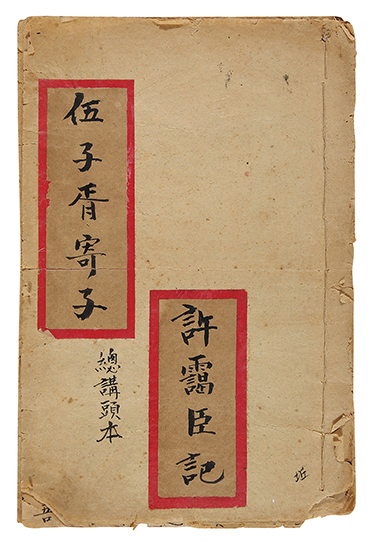 伍子胥寄子
總講頭本
許靄臣記